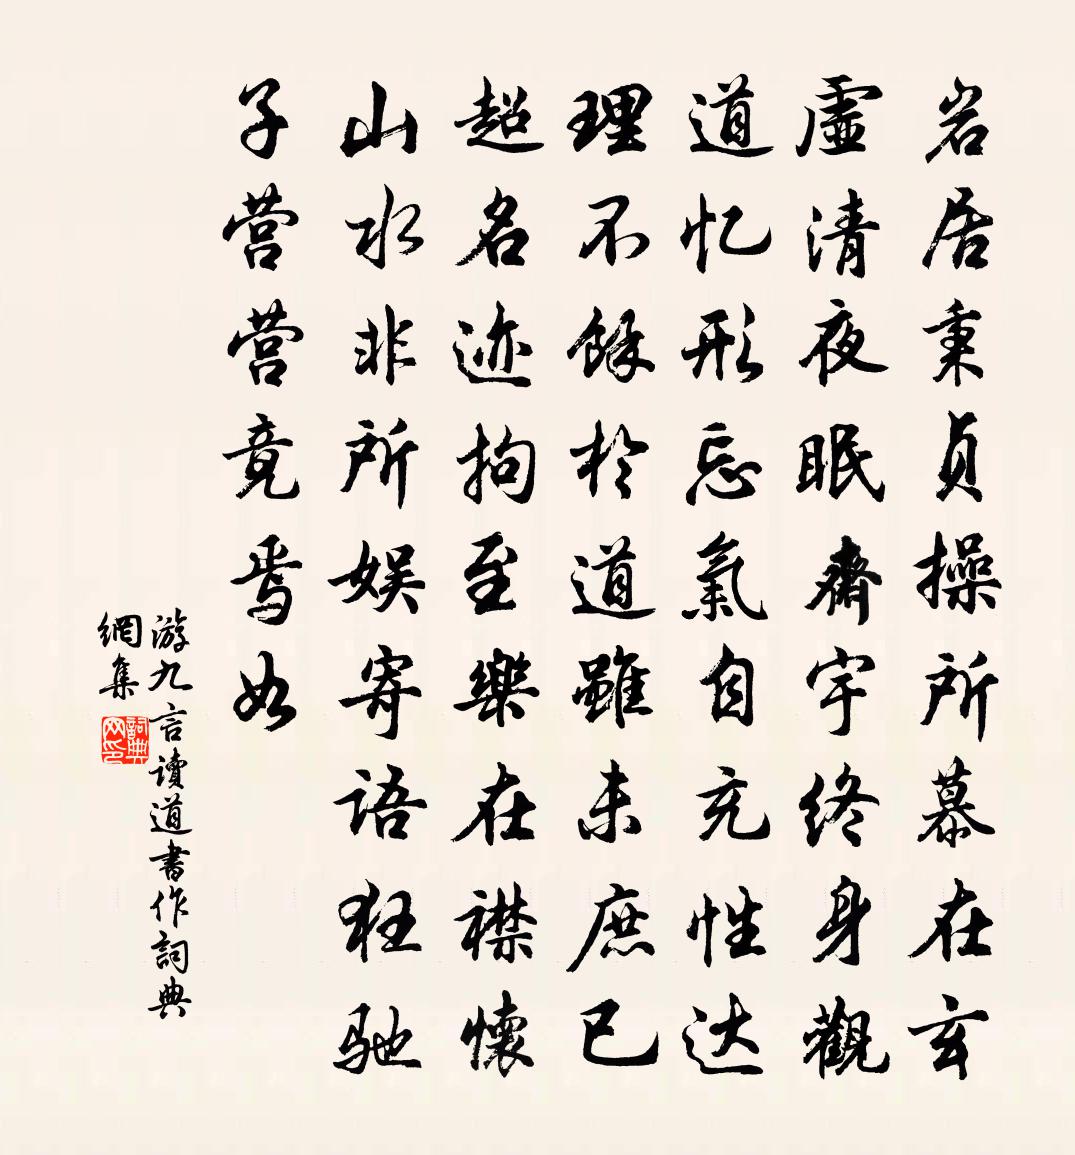 岩居秉貞操所慕在玄
虛清夜眠齋宇终身觀
道忆形忘氣自充性达
理不餘於道雖未庶已
超名迹拘至樂在襟懷
山水非所娱寄语狂驰
子营营竟焉如
游九言讀道書作詞典
網集
詞典
网印